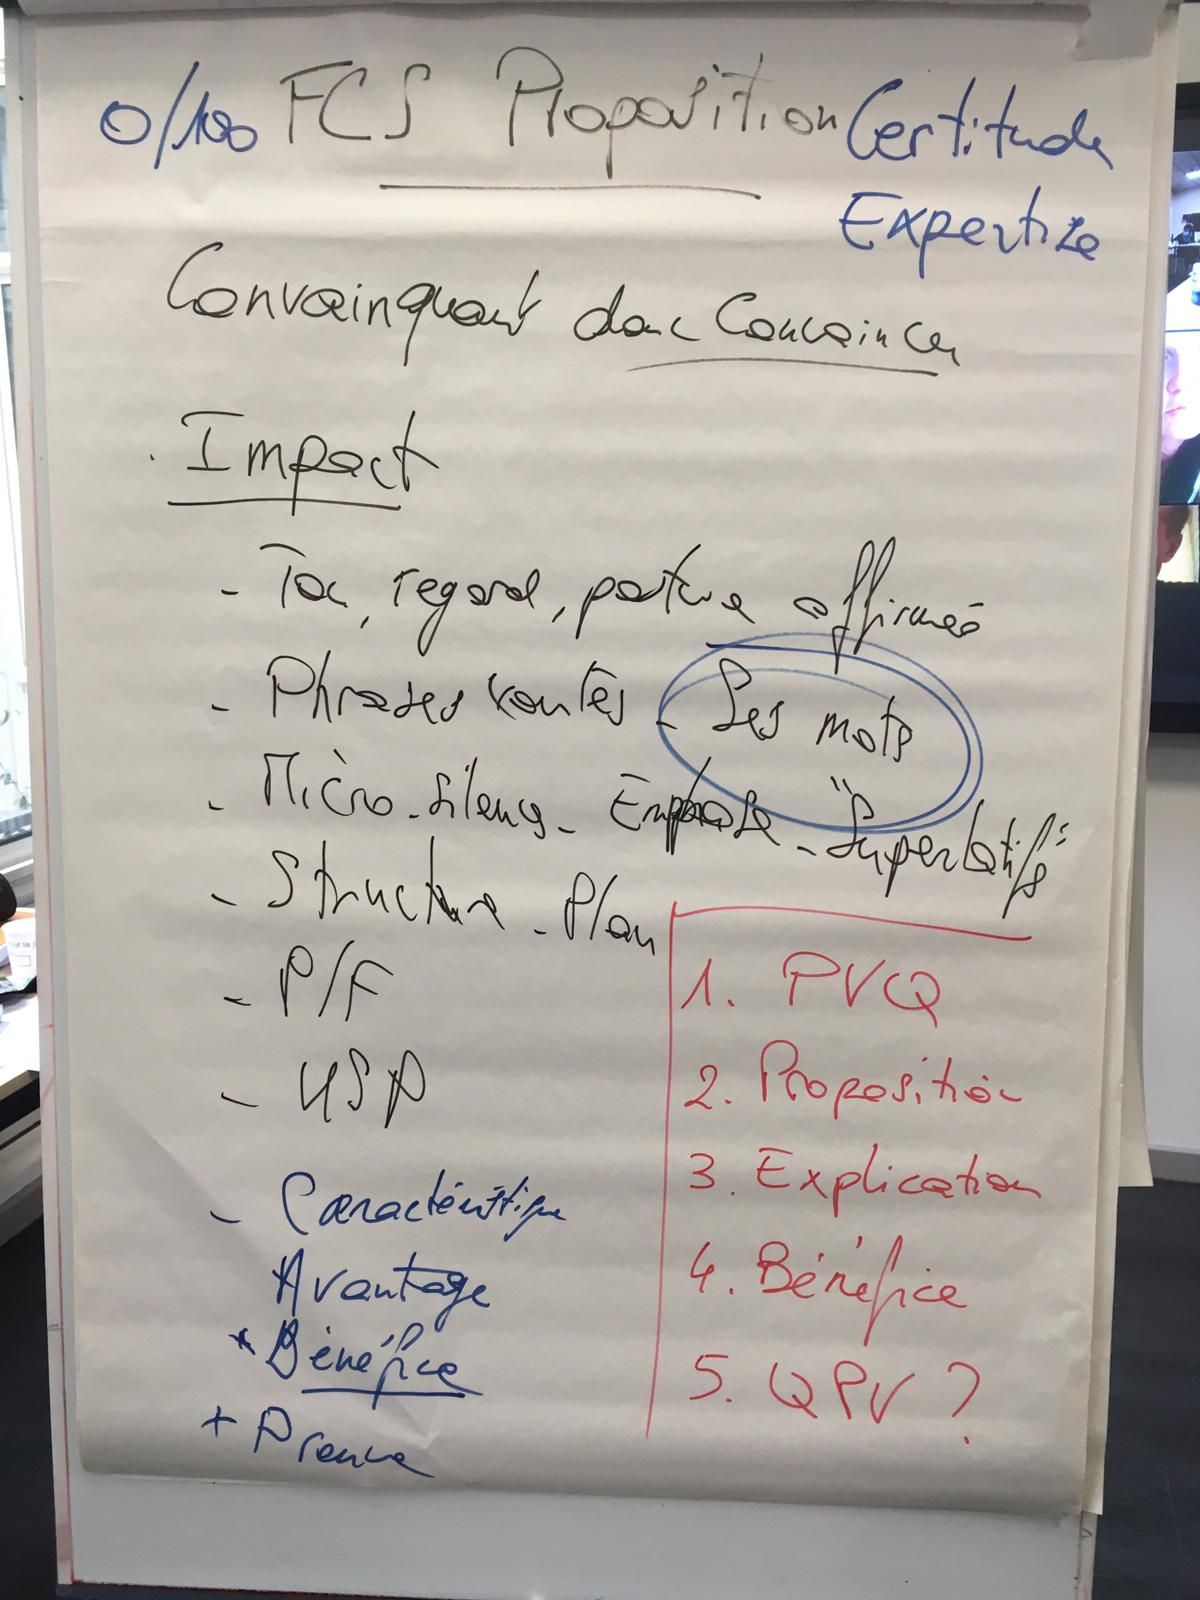 0/100 FCS Proposition Certitude
Expertise
Convainquant donc Convaincu
Impact
- Ton, regard, posture affirmée
- Phrases - Les mots
- Micro-silence - Emphase - "Superlatifs"
- Structure - Plan
- P/F
- USP
- Caractéristique
Avantage
* Bénéfice
+ Preuve
1. PVQ
2. Proposition
3. Explication
4. Bénéfice
5. QPV ?